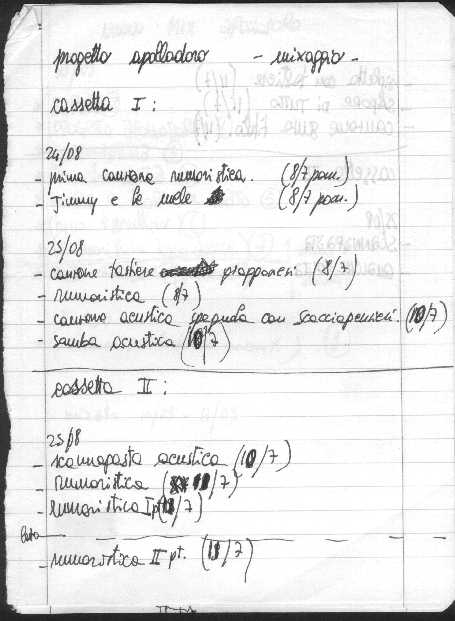 progetto apollodoro - mixaggio -
cassetta I :
24/08
- prima canzone rumoristica. (8/7 pom.)
- Jimmy e le mele (8/7 pom.)
25/08
- canzone tastiere giapponesi (8/7)
- rumoristica (8/7)
- canzone acustica spagnola con scacciapensieri. (10/7)
- samba acustica (10/7)
cassetta II :
25/08
- scannapasta acustica (10/7)
- rumoristica (11/7)
- rumoristica I pt (11/7)
- rumoristica II pt. (11/7)